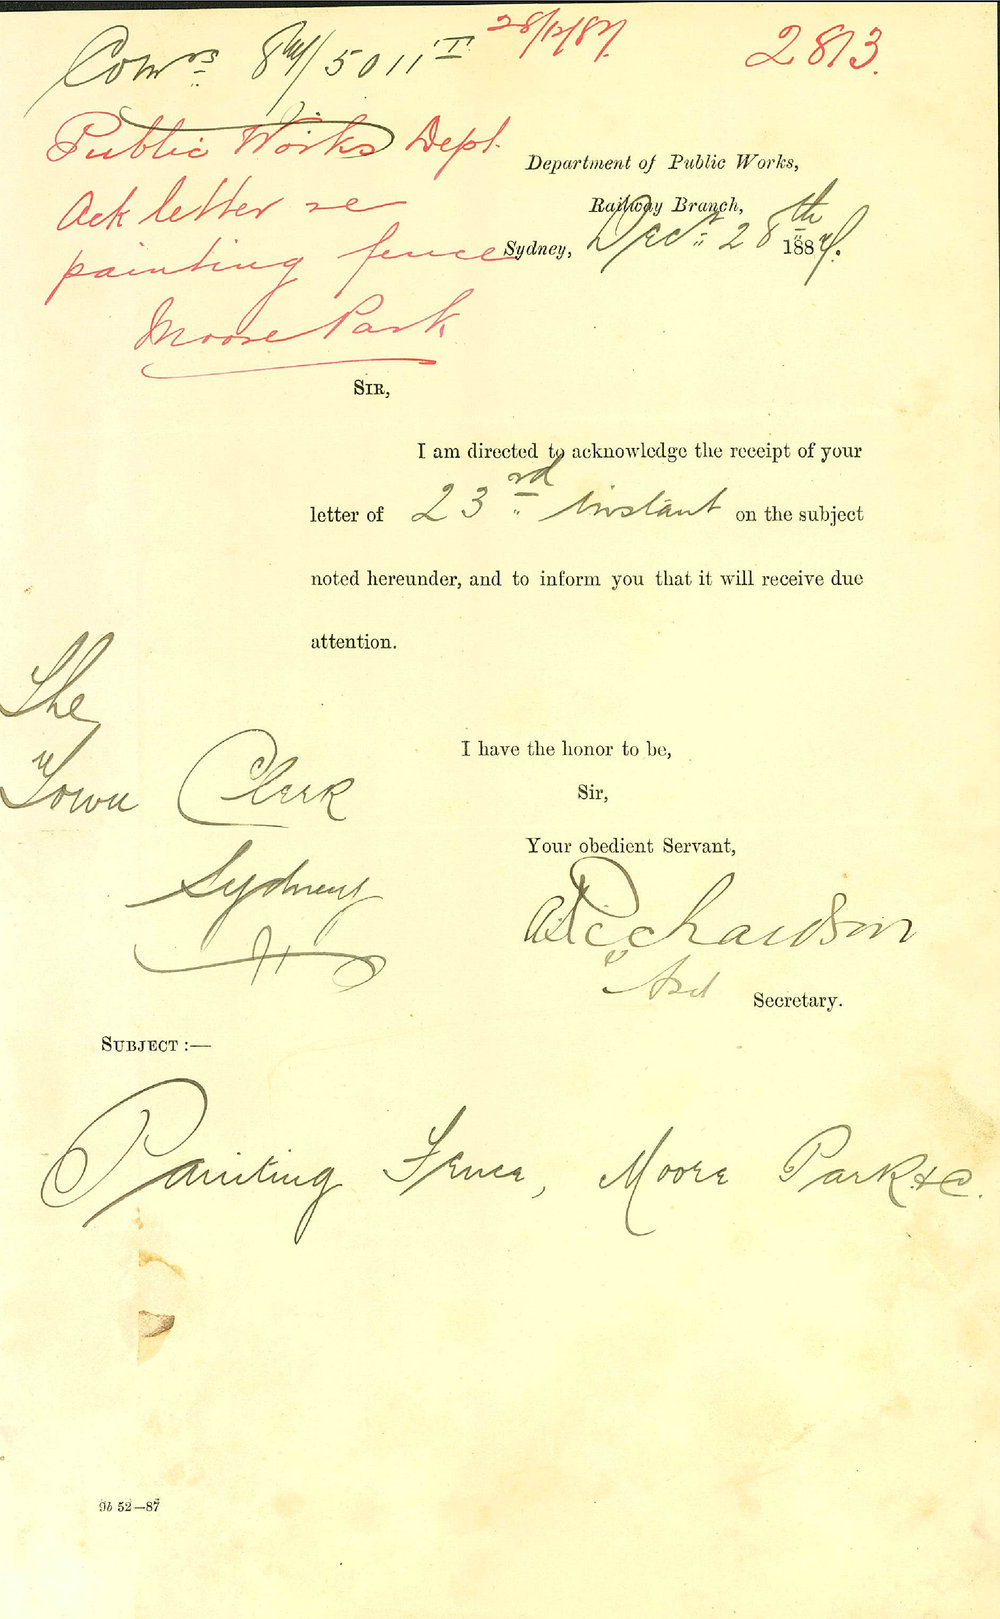 Comrs 87/5011 T 28/12/87. 2813.
Public Works Dept.
Ack letter re
painting fence
Moore Park
Department of Public Works,
Railway Branch,
Sydney, Decr 28th 1887.
SIR,
I am directed to acknowledge the receipt of your
letter of 23rd instant on the subject
noted hereunder, and to inform you that it will receive due
attention.
The
Town Clerk
Sydney
I have the honor to be,
Sir,
Your obedient Servant,
A Richardson
Secretary.
SUBJECT :—
Painting Fence, Moore Park &c.
9b 52—87